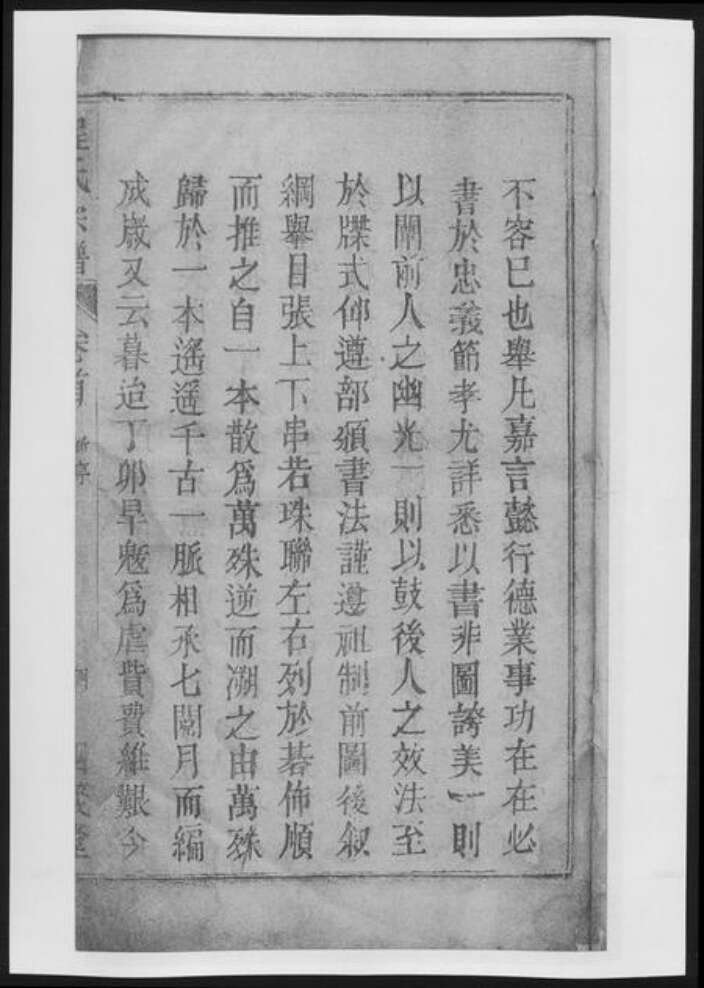 不容已也舉凡嘉言懿行德業事功在在必
書於忠義節孝尤詳悉以書非圖誇美一則
以闡前人之幽光一則以鼓後人之效法至
於牒式仰遵部頒書法謹遵祖制前圖後叙
綱舉目張上下串若珠聯左右列於碁佈順
而推之自一本散爲萬殊逆而溯之由萬殊
歸於一本遙遙千古一脈相承七閱月而編
成嵗又云暮迨丁卯旱魃爲虐貲費維艱今
氏宗譜 卷首